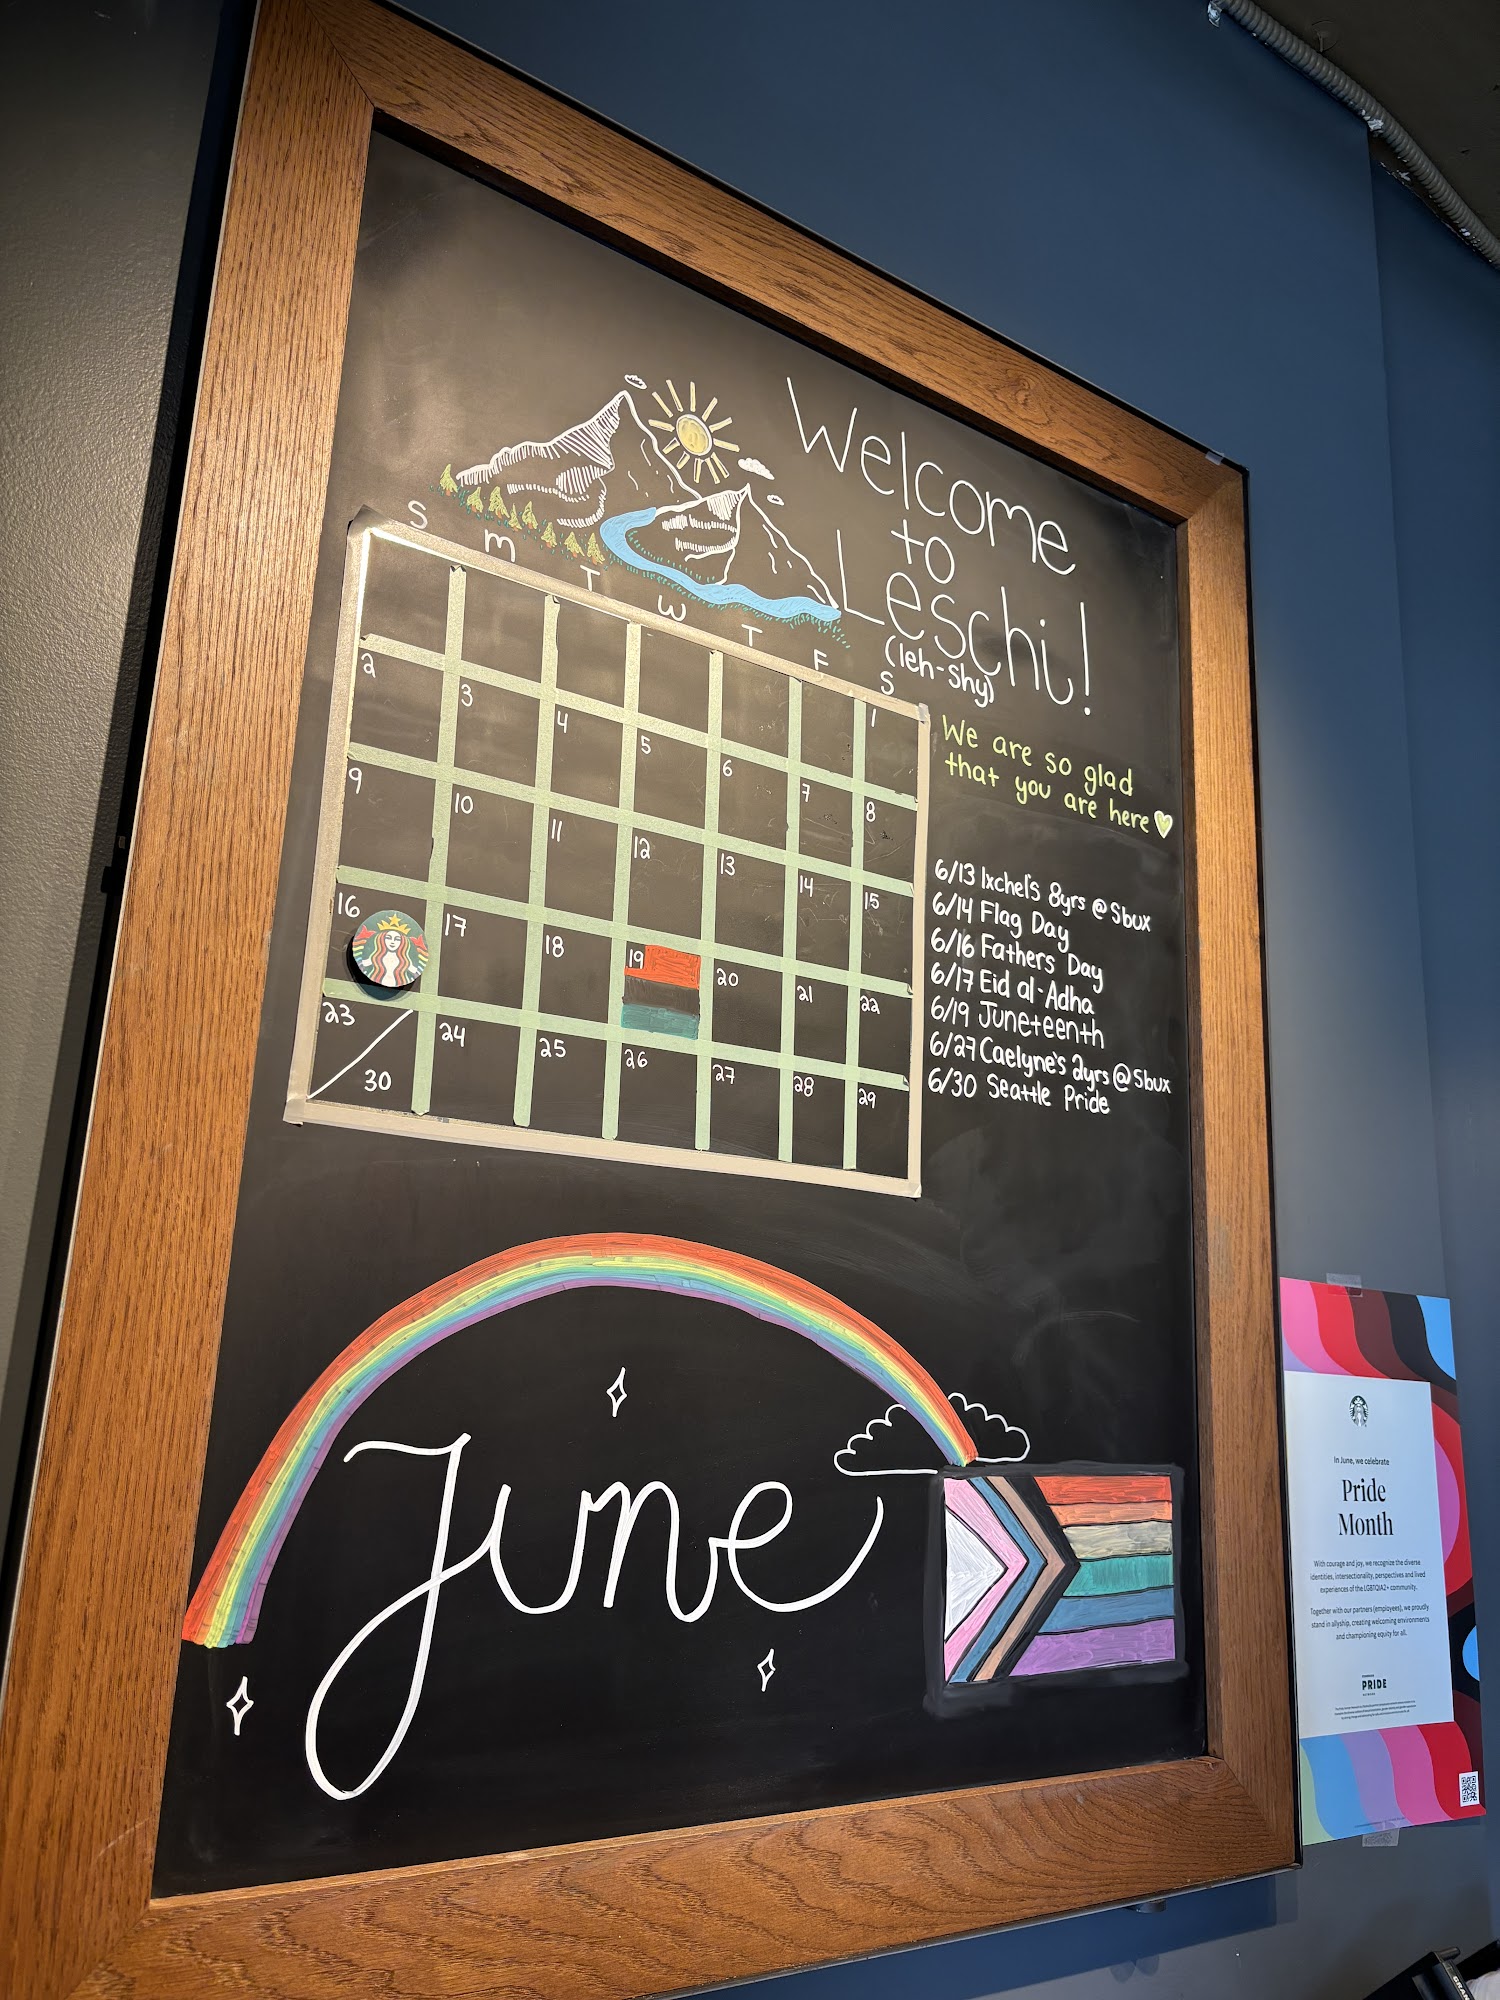 Welcome
to
Leschi!
(leh-shy)
S M T W T F S
1
2 3 4 5 6 7 8
9 10 11 12 13 14 15
16 17 18 19 20 21 22
23 24 25 26 27 28 29
30
We are so glad
that you are here
6/13 Ixchel's 8yrs @ Sbux
6/14 Flag Day
6/16 Fathers Day
6/17 Eid al-Adha
6/19 Juneteenth
6/27 Caelyne's 2yrs @ Sbux
6/30 Seattle Pride
June
In June, we celebrate
Pride
Month
With courage and joy, we recognize the diverse
identities, intersectionality, perspectives and lived
experiences of the LGBTQIA2+ community.
Together with our partners (employees), we proudly
stand in allyship, creating welcoming environments
and championing equity for all.
PRIDE